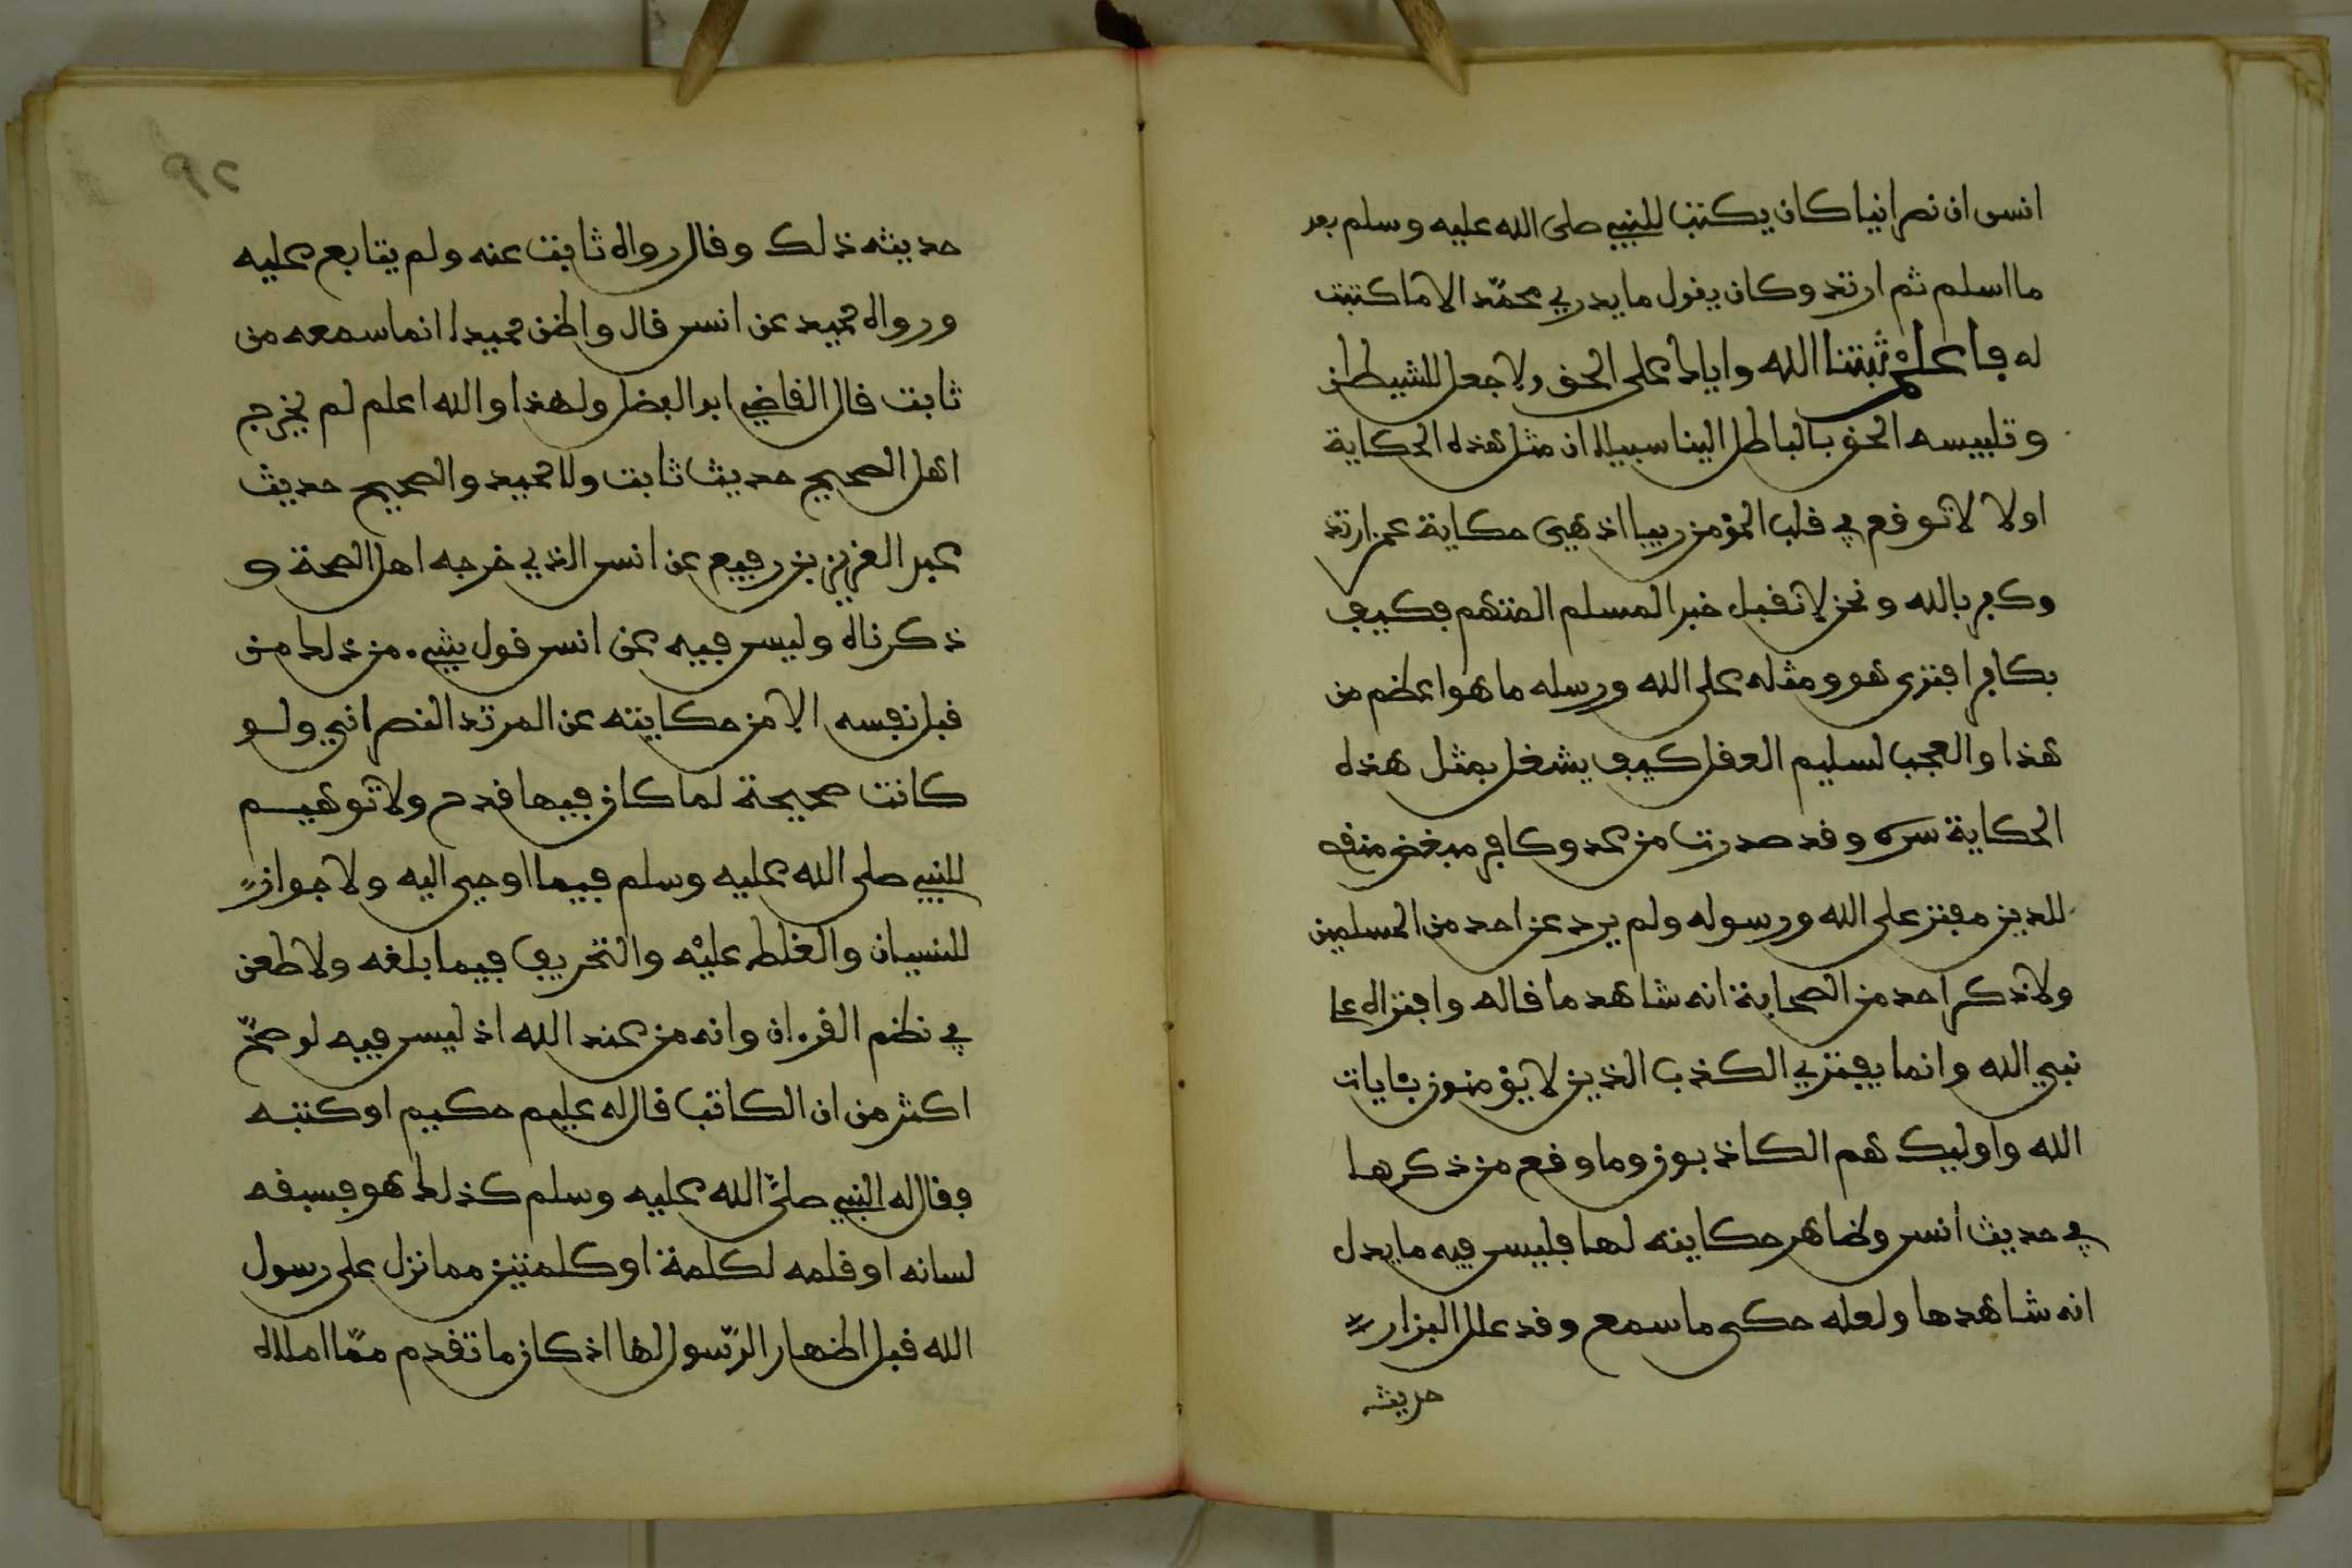 انس ان نصرانيا كان يكتب للنبيء صلى الله عليه وسلم بعد
ما اسلم ثم ارتد وكان يقول ما يدري محمّد الا ما كتبت
له فاعلم ثبتنا الله واياك على الحق ولا جعل للشيطان
وتلبيسه الحق بالباطل الينا سبيلا ان مثل هذه الحكاية
اولا لا توقع في قلب المؤمن ريبا اذ هي حكاية عمن ارتد
وكفر بالله ونحن لا نقبل خبر المسلم المتهم فكيف
بكافر افترى هو ومثله على الله ورسله ما هو اعظم من
هذا والعجب لسليم العقل كيف يشغل بمثل هذه
الحكاية سره وقد صدرت من عدو كافر مبغض منقـ
للدين مفتر على الله ورسوله ولم يرد عن احد من المسلمين
ولا ذكر احد من الصحابة انه شاهد ما قاله وافتراه على
نبي الله وانما يفتري الكذب الذين لا يؤمنون بئايات
الله واوليك هم الكاذبون وما وقع من ذكرها
في حديث انس وظاهر حكايته لها فليس فيه ما يدل
انه شاهدها ولعله حكى ما سمع وقد علل البزار
حديثه
٢٩
حديثه ذلك وقال رواه ثابت عنه ولم يتابع عليه
ورواه حميد عن انس قال واظن حميدا انما سمعه من
ثابت قال القاضي ابو الفضل ولهذا والله اعلم لم يخرج
اهل الصحيح حديث ثابت ولا حميد والصحيح حديث
عبد العزيز بن رفيع عن انس الذي خرجه اهل الصحة و
ذكرناه وليس فيه عن انس قول شيء من ذلك من
قبل نفسه الا من حكايته عن المرتد النصراني ولو
كانت صحيحة لما كان فيها قدح ولا توهيم
للنبيء صلى الله عليه وسلم فيما اوحي اليه ولا جواز
للنسيان والغلط عليْه والتحريف فيما بلغه ولا طعن
في نظم القرءان وانه من عند الله اذ ليس فيه لو صحّ
اكثر من ان الكاتب قال له عليم حكيم او كتبه
فقال له النبيء صلّى الله عليه وسلم كذلك هو فسبقه
لسانه او قلمه لكلمة او كلمتين مما نزل على رسول
الله قبل اظهار الرّسول لها اذ كان ما تقدم ممّا املاه